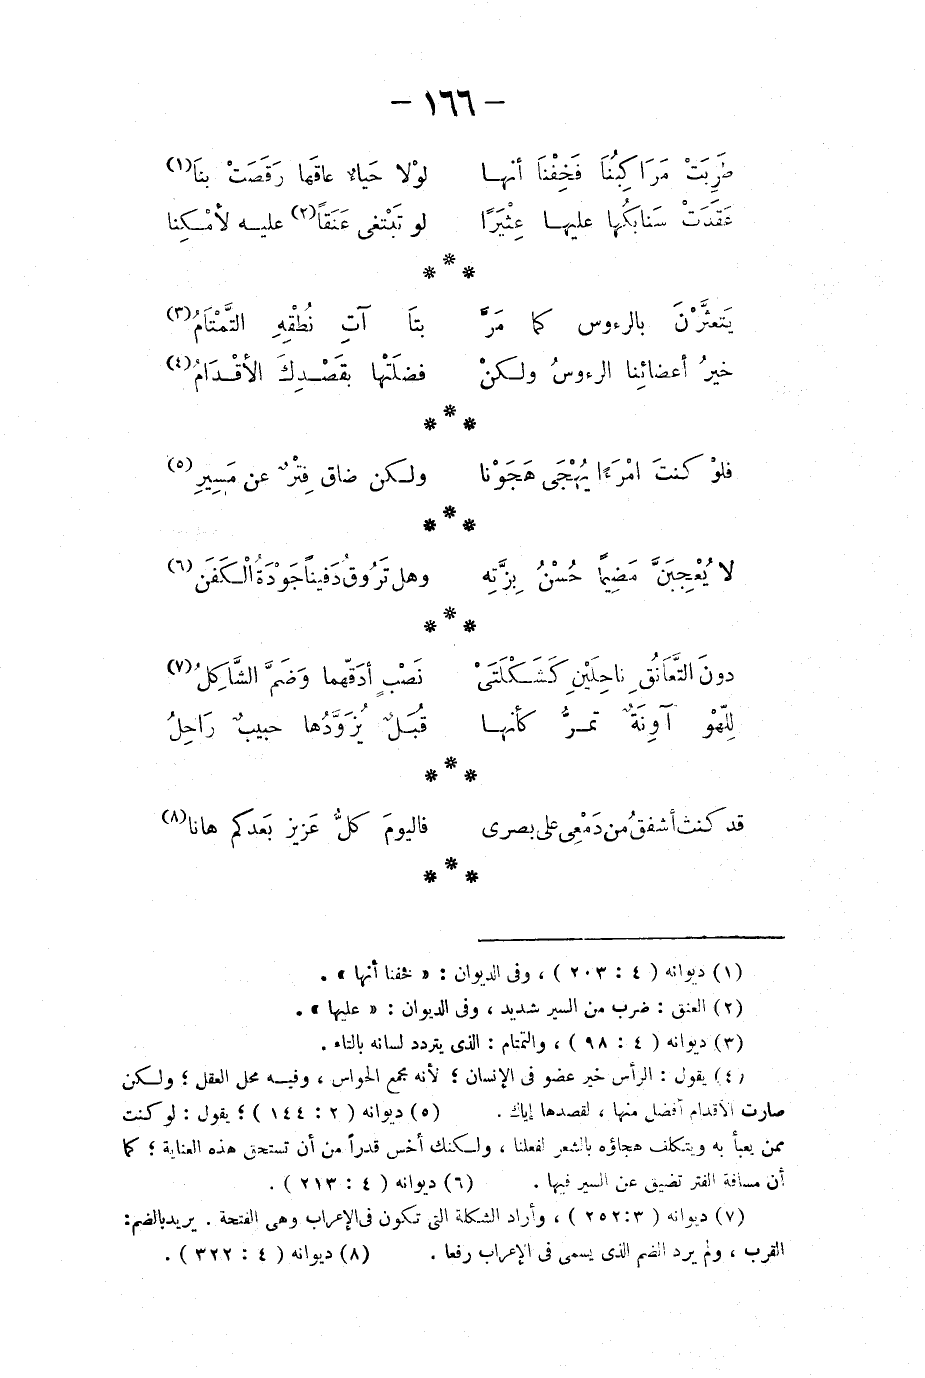 — ١٦٦ —
طَرِبَتْ مَرَاكِبُنَا فَخِفْنَا أنهـا لوْلا حَياء عاقَها رَقَصَتْ بنَا(١)
عَقَدَتْ سَنابكُها عليهـا عِثْيَرًا لو تَبْتغى عَنَقاً(٢) عليـه لأمْـكِنا
* * *
يَتعثَّرْنَ بالرءوس كما مَرَّ بتَا آتِ نُطْقِهِ التَّمْتَامُ(٣)
خيرُ أعضائِنا الرءوسُ ولـكنْ فضلَتْها بقَصْـدِكَ الأقْـدَامُ(٤)
* * *
فلوْ كنتَ امْرَءًا يُهْجَى هَجَوْنا ولـكن ضاق فِتْرٌ عن مَسِيرِ(٥)
* * *
لا يُعْجِبَنَّ مَضِيماً حُسْنُ بِزَّتِهِ وهل تَرُوقُ دَفيناً جَوْدَةُ الْـكَفَنِ(٦)
* * *
دونَ التَّعَانُقِ ناحِلَيْنِ كَشَـكْلَتَىْ نَصْبٍ أدَقّهما وَضَمَّ الشَّاكِلُ(٧)
لِلّهوْ آوِنَةٌ تمـرُّ كأنهـا قُبَـلٌ يُزَوَّدُها حبيبٌ رَاحِلُ
* * *
قد كنت أشفقُ من دَمْعِى على بصرى فاليومَ كلُّ عَزيز بَعدكم هانا(٨)
* * *
(١) ديوانه ( ٤ : ٢٠٣ ) ، وفى الديوان : « نخفنا أنها » .
(٢) العنق : ضرب من السير شديد ، وفى الديوان : « عليها » .
(٣) ديوانه ( ٤ : ٩٨ ) ، والتمتام : الذى يتردد لسانه بالتاء .
(٤) يقول : الرأس خير عضو فى الإنسان ؛ لأنه مجمع الحواس ، وفيـه محل العقل ؛ ولـكن
صارت الأقدام أفضل منها ، لقصدها إياك . (٥) ديوانه ( ٢ : ١٤٤ ) ؛ يقول : لو كنت
ممن يعبأ به ويتكلف هجاؤه بالشعر لفعلنا ، ولـكنك أخس قدراً من أن تستحق هذه العناية ؛ كما
أن مسافة الفتر تضيق عن السير فيها . (٦) ديوانه ( ٤ : ٢١٣ ) .
(٧) ديوانه ( ٣:٢٥٢ ) ، وأراد الشكلة التى تكون فى الإعراب وهى الفتحة . يريد بالضم :
القرب ، ولم يرد الضم الذى يسمى فى الإعراب رفعا . (٨) ديوانه ( ٤ : ٣٢٢ ) .